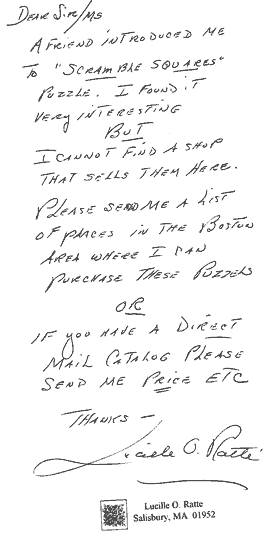 Dear Sir/Ms
A friend introduced me
to "Scramble Squares"
puzzle. I found it
very interesting
But
I cannot find a shop
that sells them here.
Please send me a list
of places in the Boston
area where I can
purchase these puzzels
or
if you have a direct
mail catalog please
send me price etc
Thanks —
Lucille O. Ratté
Lucille O. Ratte
Salisbury, MA 01952